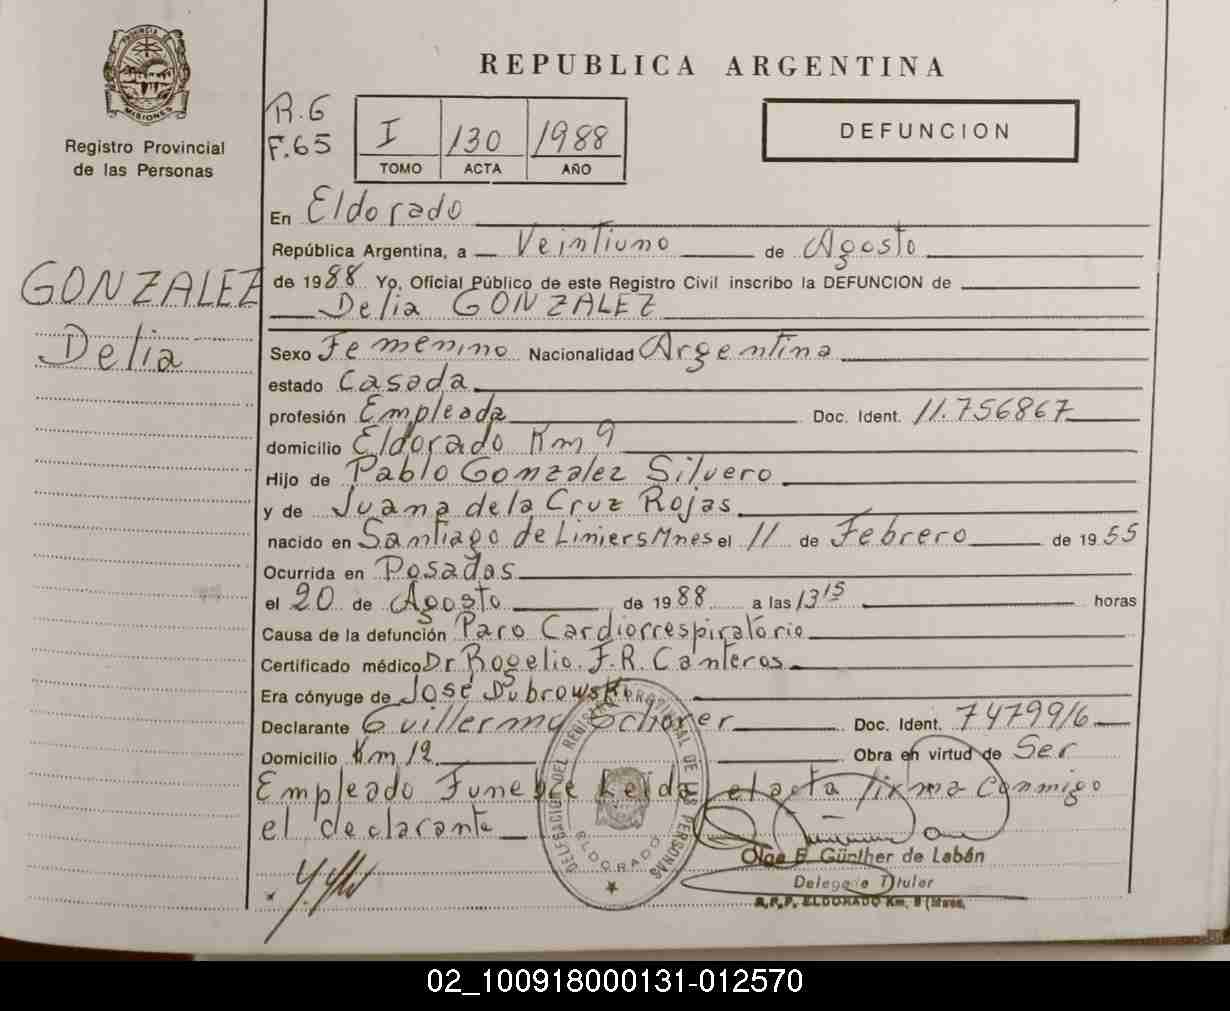 PROVINCIA DE
MISIONES
Registro Provincial
de las Personas
GONZALEZ
Delia
REPUBLICA ARGENTINA
R.G
F.65
I 130 1988
TOMO ACTA AÑO
DEFUNCION
En Eldorado
República Argentina, a Veintiuno de Agosto
de 1988 Yo, Oficial Público de este Registro Civil inscribo la DEFUNCION de
Delia GONZALEZ
Sexo Femenino Nacionalidad Argentina
estado Casada
profesión Empleada Doc. Ident. 11.756867
domicilio Eldorado Km 9
Hijo de Pablo Gonzalez Silvero
y de Juana de la Cruz Rojas
nacido en Santiago de Liniers Mnes el 11 de Febrero de 1955
Ocurrida en Posadas
el 20 de Agosto de 1988 a las 13 15 horas
Causa de la defunción Paro Cardiorrespiratorio
Certificado médico Dr Rogelio. F.R. Canteros
Era cónyuge de José Dubrowski
Declarante Guillermo Schorer Doc. Ident. 7479916
Domicilio Km 12 Obra en virtud de Ser
Empleado Funebre Leida el acta firma conmigo
el declarante
DELEGACION DEL REGISTRO PROVINCIAL DE LAS PERSONAS
ELDORADO
Olga E. Günther de Labán
Delegada Titular
R.P.P. ELDORADO Km. 9 (Mnes.
02_100918000131-012570